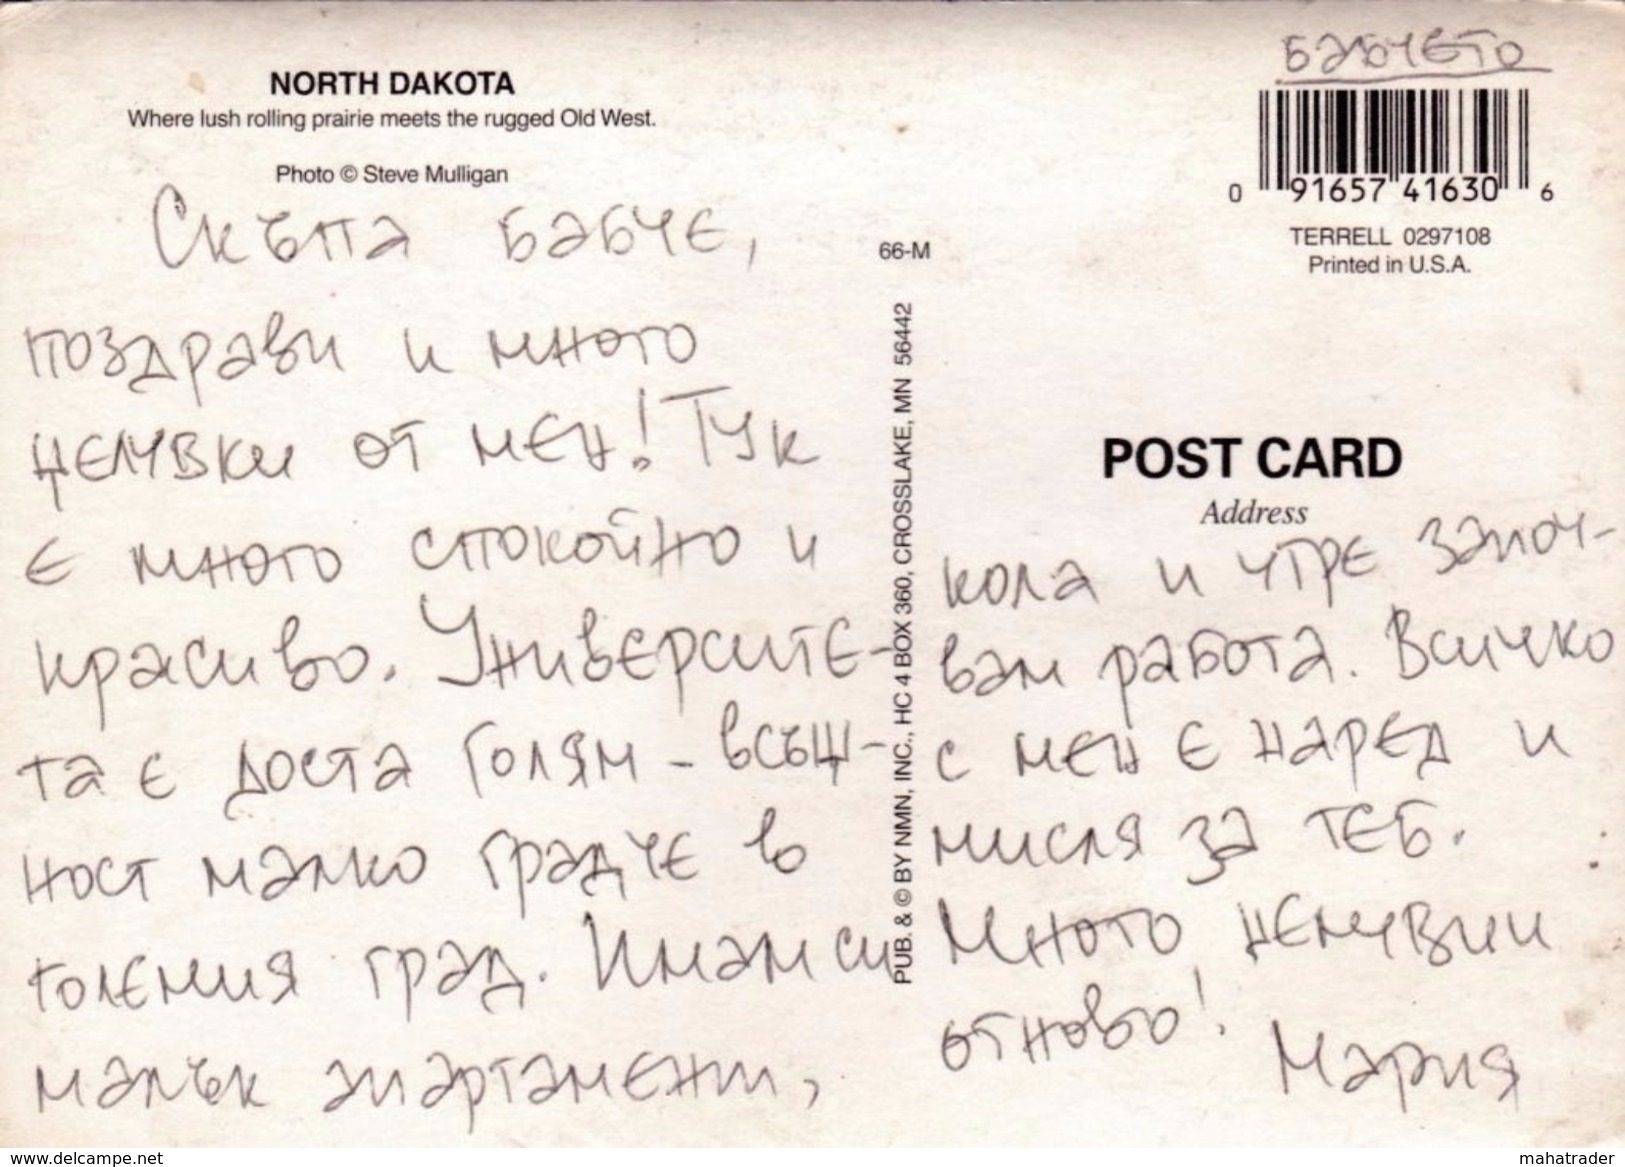 NORTH DAKOTA
Where lush rolling prairie meets the rugged Old West.
Photo © Steve Mulligan
Скъпа бабче,
поздрави и много
целувки от мен! Тук
е много спокойно и
красиво. Университе-
та е доста голям - всъщ-
ност малко градче в
големия град. Имам си
малък апартамент,
66-M
PUB. & © BY NMN, INC., HC 4 BOX 360, CROSSLAKE, MN 56442
бабчето
0 91657 41630 6
TERRELL 0297108
Printed in U.S.A.
POST CARD
Address
кола и утре започ-
вам работа. Всичко
с мен е наред и
мисля за теб.
Много целувки
отново!
Мария
www.delcampe.net
mahatrader